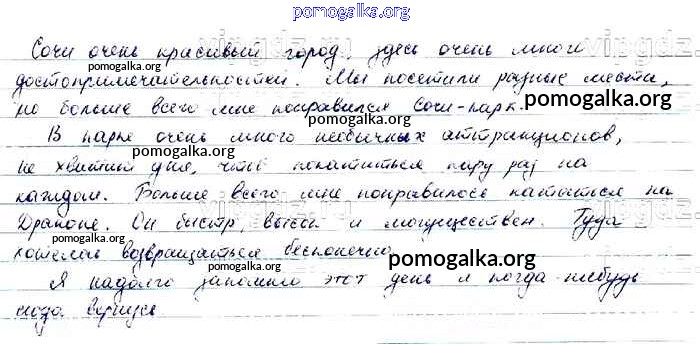 pomogalka.org
Сочи очень красивый город, здесь очень много
достопримечательностей. Мы посетили разные места,
но больше всего мне понравился Сочи-парк.
pomogalka.org
В парке очень много необычных аттракционов,
pomogalka.org
не хватит дня, чтоб покататься пару раз на
каждом. Больше всего мне понравилось кататься на
Драконе. Он быстр, высок и могуществен. Туда
pomogalka.org
хотелось возвращаться бесконечно.
pomogalka.org
pomogalka.org
Я надолго запомню этот день и когда-нибудь
сюда вернусь